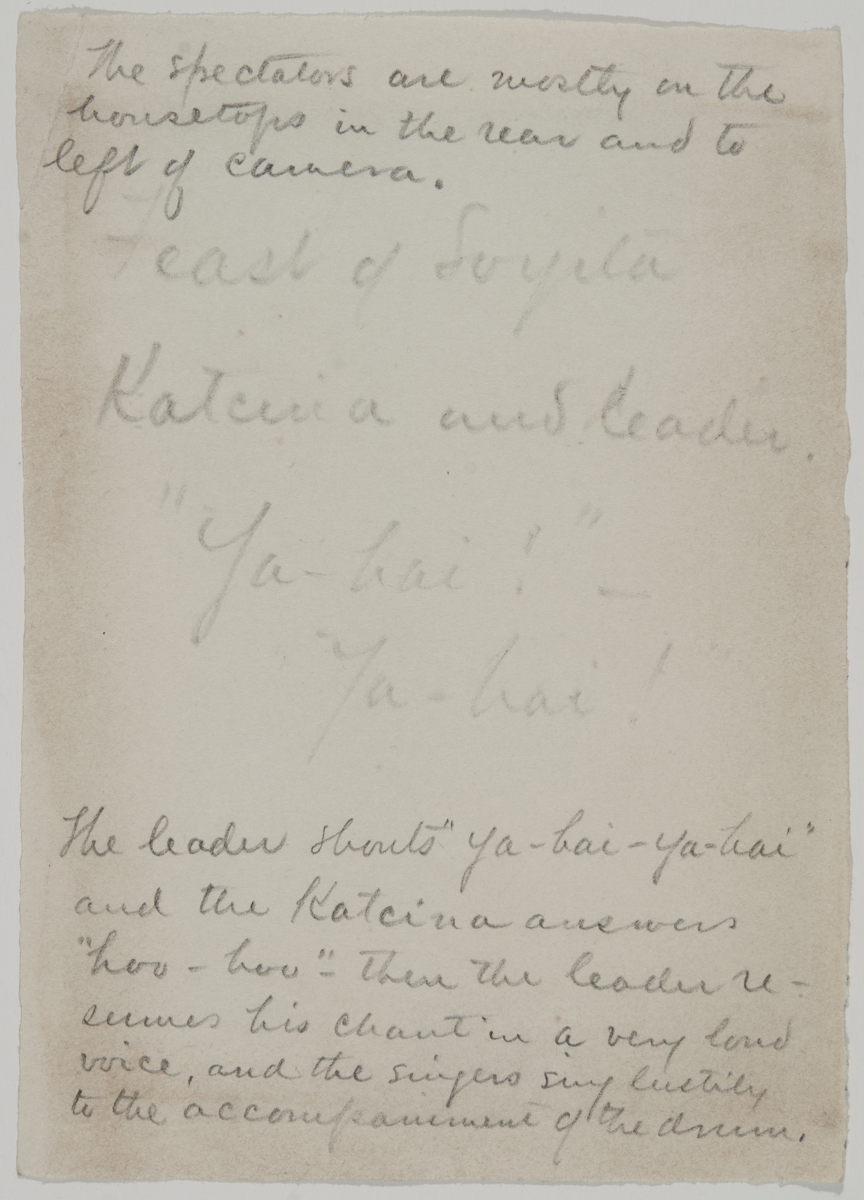 The spectators are mostly on the
housetops in the rear and to
left of camera.
Feast of Soyita
Katcina and leader.
"Ya-hai!" –
"Ya-hai!"
The leader shouts "Ya-hai-Ya-hai"
and the Katcina answers
"hoo-hoo" – then the leader re-
sumes his chant in a very loud
voice, and the singers sing lustily
to the accompaniment of the drum.